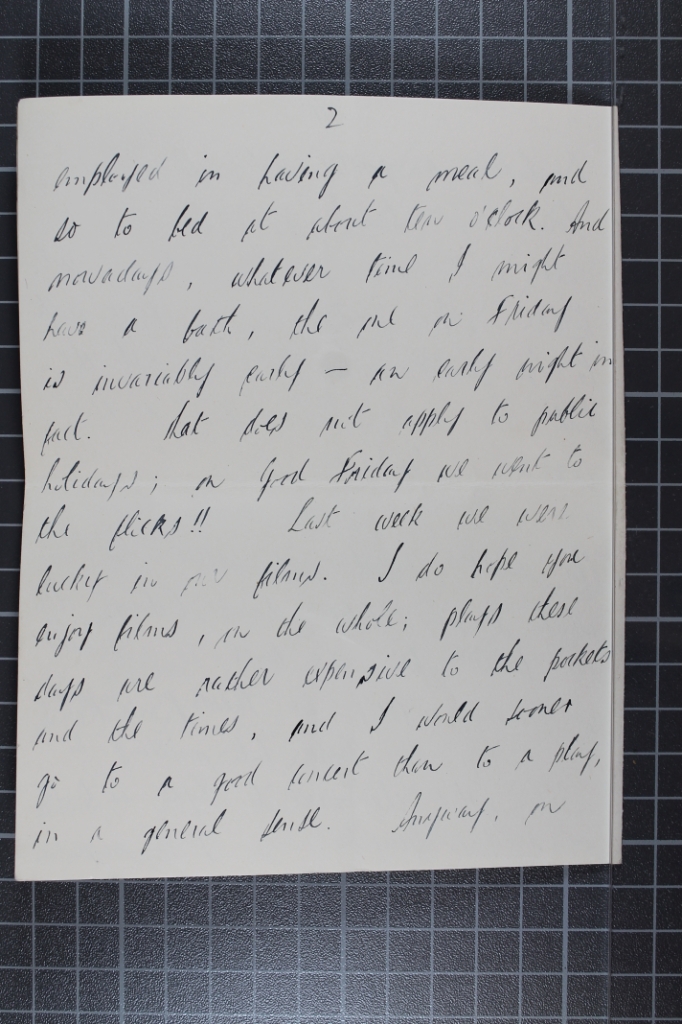 2
employed in having a meal, and
so to bed at about ten o'clock. And
nowadays, whatever time I might
have a bath, the one on Friday
is invariably early — an early night in
fact. That does not apply to public
holidays; on Good Friday we went to
the flicks!! Last week we were
lucky in our films. I do hope you
enjoy films, on the whole; plays these
days are rather expensive to the pockets
and the times, and I would sooner
go to a good concert than to a play,
in a general sense. Anyway, on